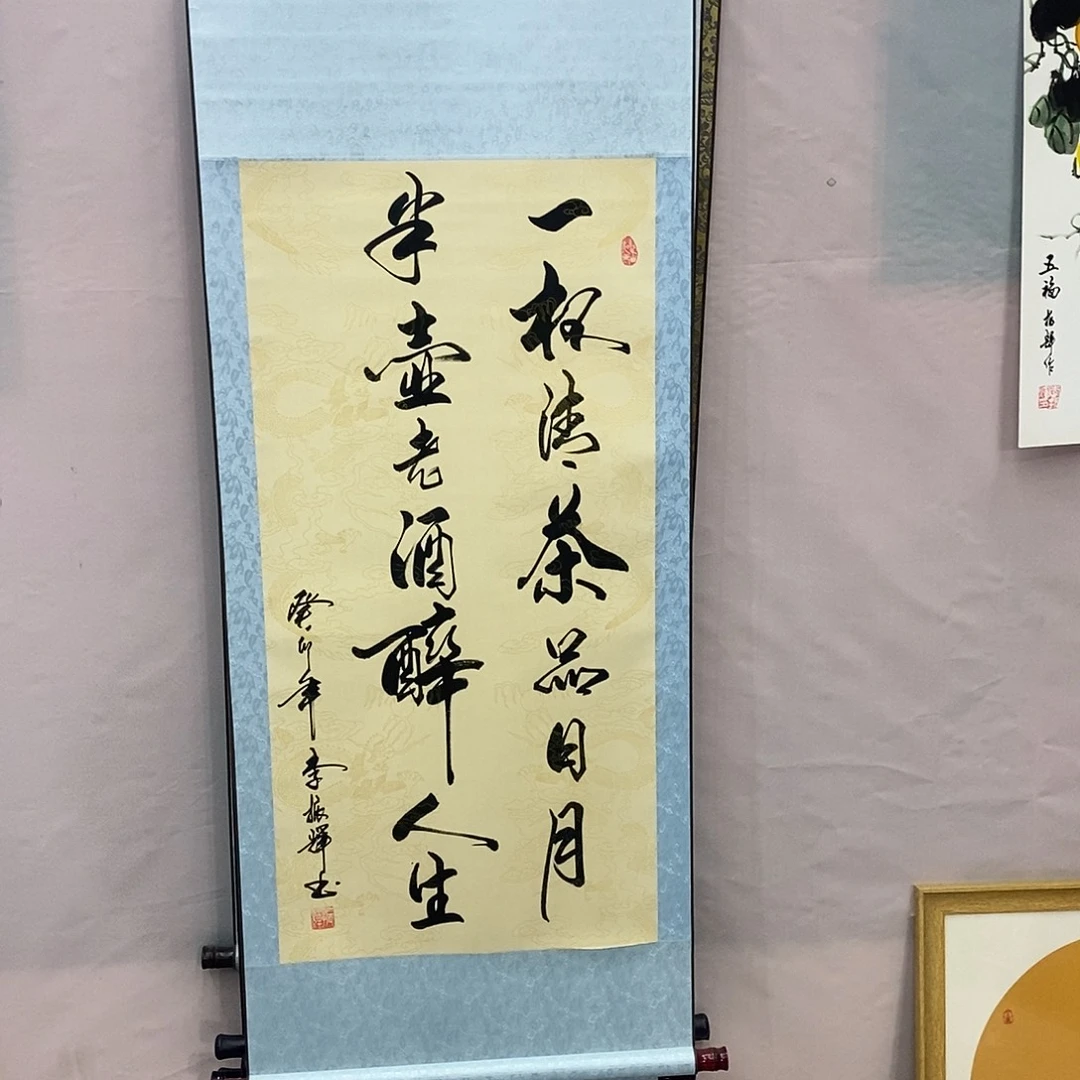 一杯清茶品日月
半壺老酒醉人生
癸卯年李振輝书
五福